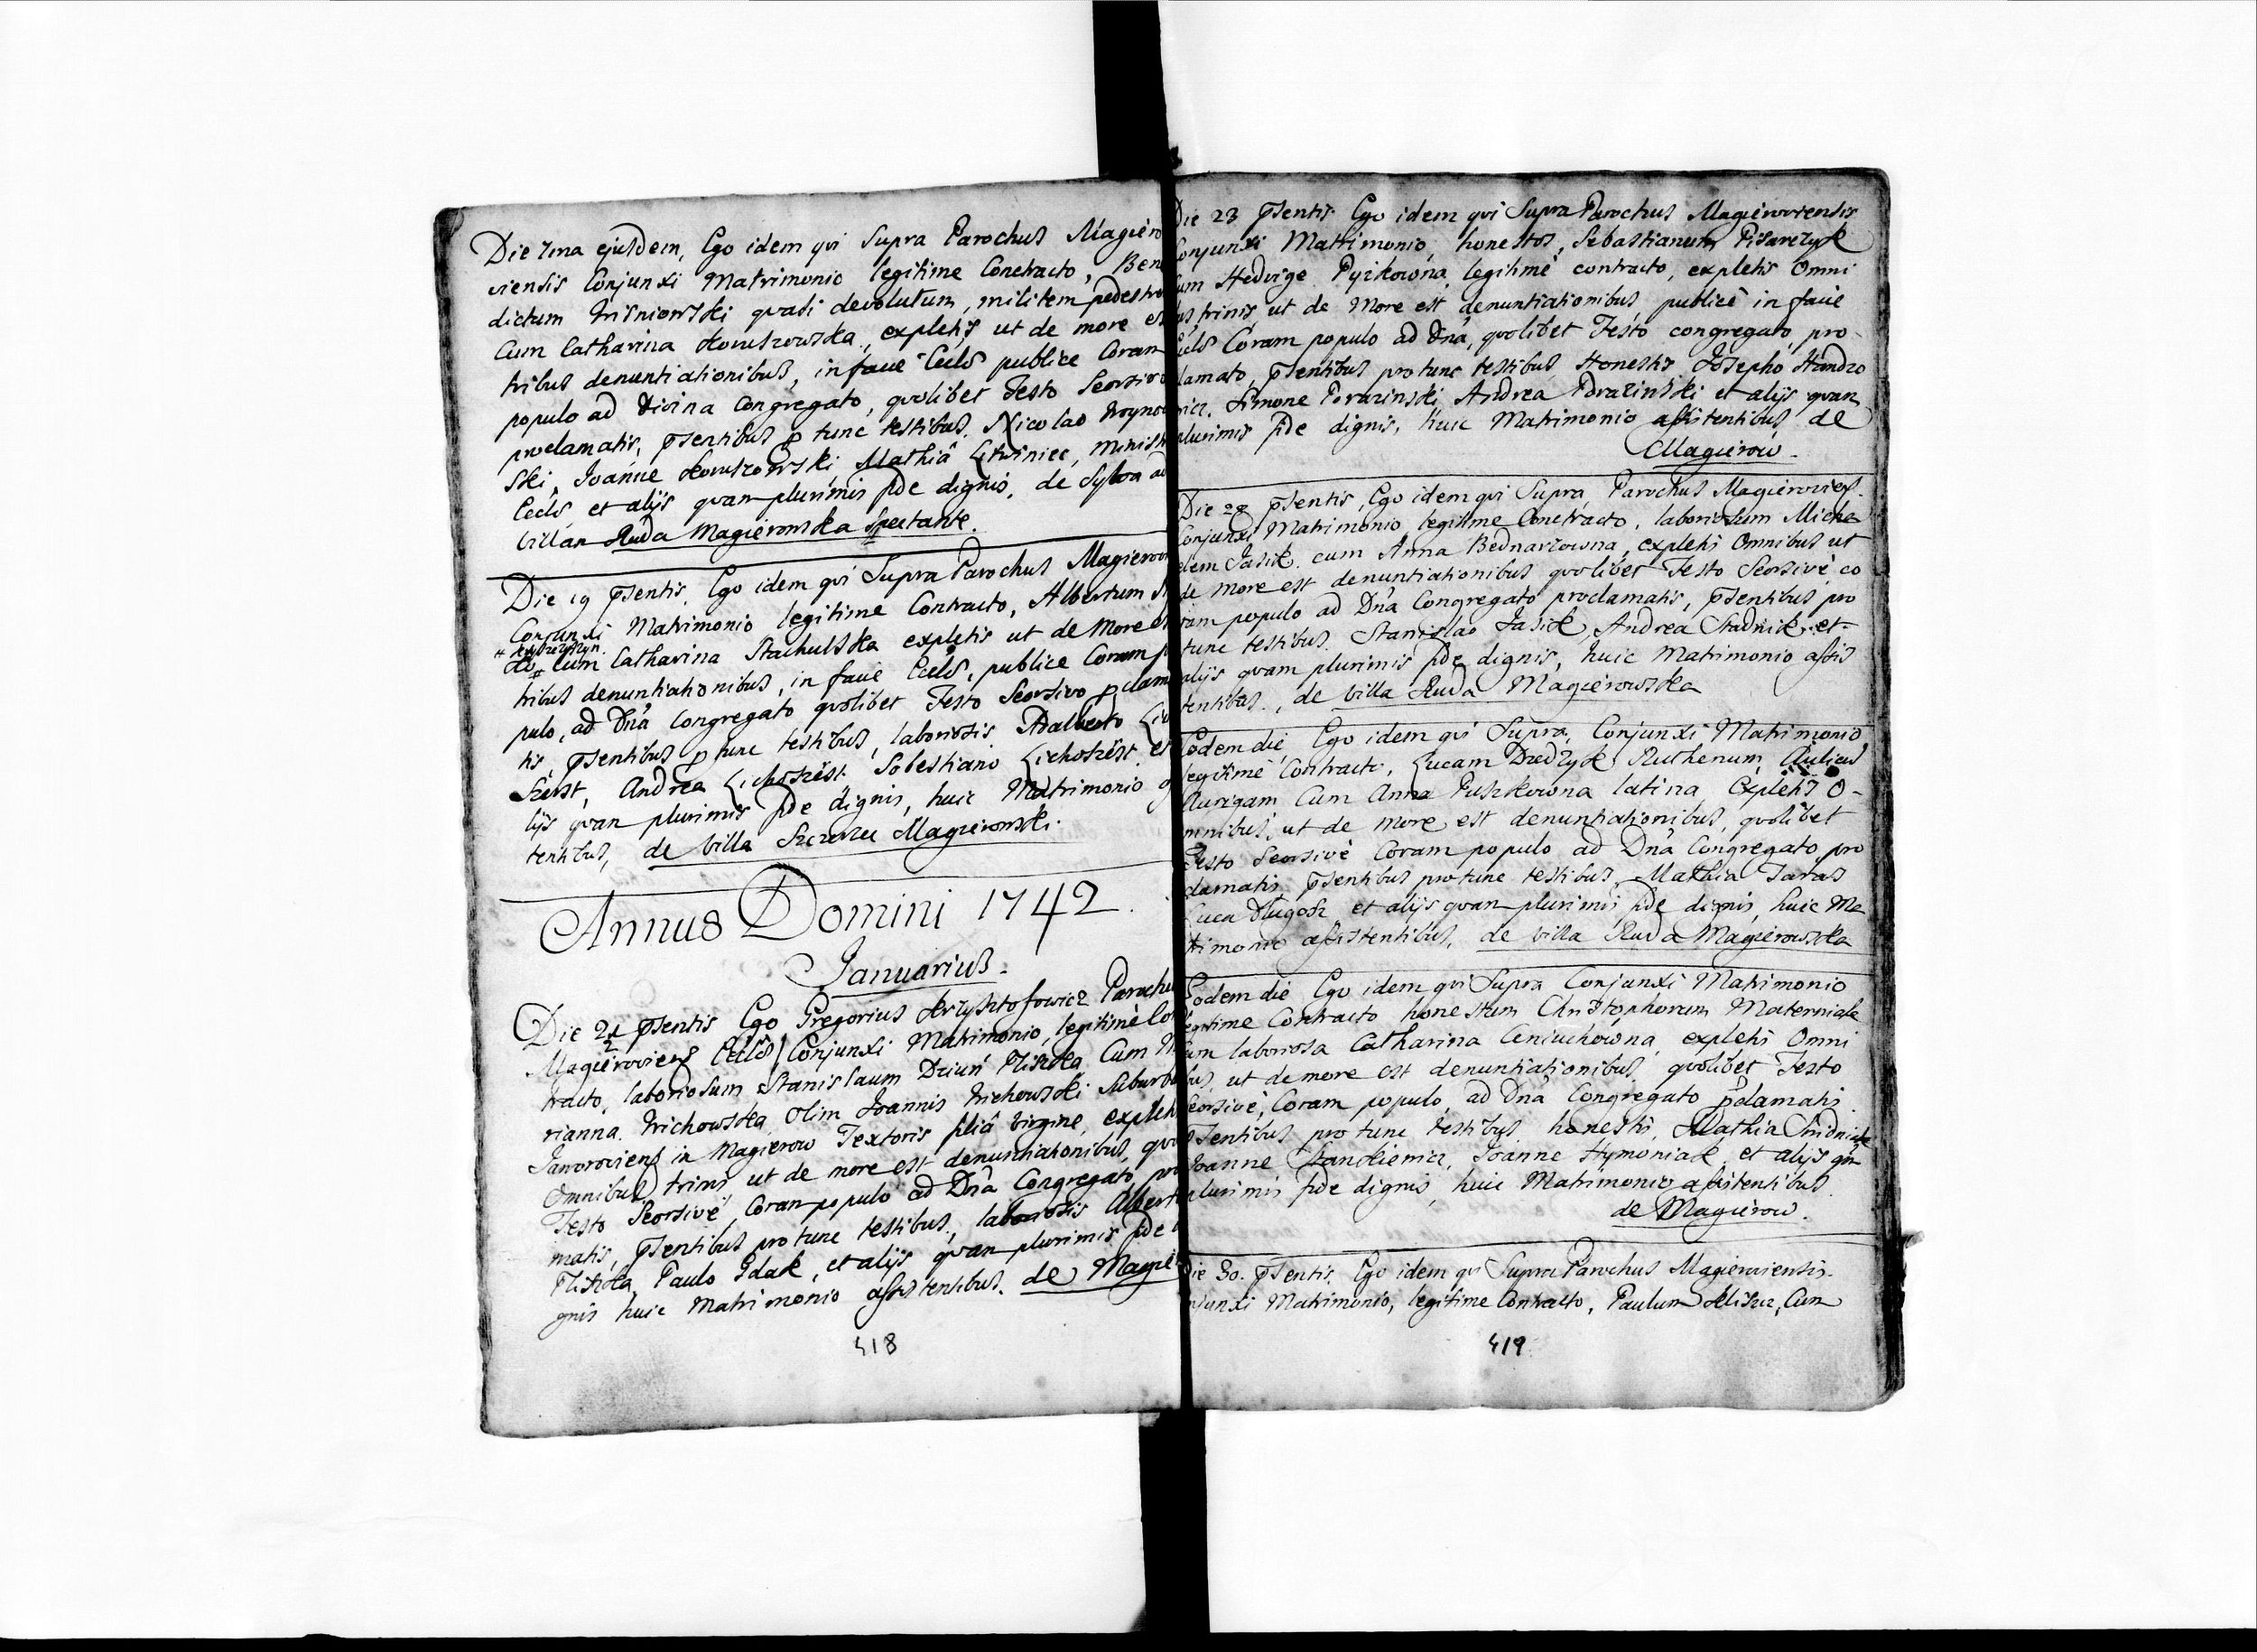 Die 7ma ejusdem, Ego idem qui Supra Parochus Magiero
viensis Conjunxi Matrimonio legitime Contracto, Ben
dictum Wisniowski quasi devolutum, militem pedestre
Cum Catharina Koruszowska, expletis ut de more es
tribus denuntiationibus, in facie Eccls publice Coram
populo ad divina Congregato, quolibet Festo Seorsivo
proclamatis, pSentibus p tunc testibus, Nicolao Woyno
Ski, Joanne Koruszowski Mathia Litwiniec, minist
Eccls et alijs quam plurimis fide dignis, de Sylva ad
villam Ruda Magierowska Spectante.
Die 19 pSentis, Ego idem qui Supra Parochus Magierov
Conjunxi Matrimonio legitime Contracto, Albertum
cum Catharina Stachulska expletis ut de More es
tribus denuntiationibus, in facie Eccls, publice Coram p
pulo, ad Dna Congregato quolibet Festo Seorsivo pclam
tis, pSentibus p tunc testibus, laboriosis Adalberto
Szost, Andrea Lichoszést Sobestiano Lichoszést et
lijs quam plurimis fide dignis, huic Matrimonio
tentibus, de villa Szczerzec Magierowski.
Annus Domini 1742.
Januarius.
Die 21 pSentis Ego Gregorius Krzysztofowicz Parochu
Magieroviens Eccls Conjunxi Matrimonio, legitimè Co
tracto, laboriosum Stanislaum Dziun Fliszka Cum M
rianna Wichowska, Olim Joannis Wichowski Suburb
Jaworoviens in Magierow Textoris filiâ virgine, explet
Omnibus trinis ut de more est denuntiationibus, quo
Festo Seorsivè, Coram populo ad Dna Congregato, pro
matis, pSentibus pro tunc testibus, laboriosis Albert
Fliszka, Paulo Gdak, et alijs quam plurimis fide
gnis huic Matrimonio assistentibus. de Magier
418
Die 23 pSentis Ego idem qui Supra Parochus Magieroviensis
Conjunxi Matrimonio, honestos, Sebastianum Pisarczyk
cum Hedvige Pyzikowna, legitimè contracto, expletis Omni
bus, trinis ut de More est denuntiationibus publicè in facie
Eccls Coram populo ad Dna, quolibet Festo congregato, pro-
clamato, pSentibus pro tunc testibus Honestis Josepho Handzo
wicz, Simone Porazinski, Andrea Porazinski et alijs quam
plurimis fide dignis, huic Matrimonio assistentibus de
Magierow.
Die 28 pSentis, Ego idem qui Supra, Parochus Magierovien.
Conjunxi Matrimonio legitime Contracto, laboriosum Micha
elem Jasik cum Anna Bednarzowna, expletis Omnibus ut
de more est denuntiationibus quolibet Festo Seorsivè, co
ram populo ad Dna Congregato proclamatis, pSentibus pro
tunc testibus Stanislao Jasik, Andrea Stadnik, et
alijs quam plurimis fide dignis, huic Matrimonio assis
tentibus, de villa Ruda Magierowska
Eodem die, Ego idem qui Supra, Conjunxi Matrimonio
legitimè Contracto, Lucam Dzedzyk Ruthenum, Aulicus
Aurigam Cum Anna Puszkowna latina expletis O-
mnibus, ut de more est denuntiationibus, quolibet
Festo Seorsivè Coram populo ad Dna Congregato, pro
clamatis, pSentibus pro tunc testibus, Mathia Taras
Luca Dlugosz, et alijs quam plurimis fide dignis, huic Ma
trimonio assistentibus, de villa Ruda Magierowska
Eodem die Ego idem qui Supra Conjunxi Matrimonio
legitime Contracto honestum Christophorum Materniak
cum laboriosa Catharina Ceniuchowna, expletis Omni
bus, ut de more est denuntiationibus, quolibet Festo
Seorsivè, Coram populo ad Dna Congregato pclamatis
pSentibus pro tunc testibus honestis, Mathia
Joanne Stankiewicz, Joanne Hymoniak, et alijs qm
plurimis fide dignis, huic Matrimonio assistentibus
de Magierow.
Die 30. pSentis, Ego idem qui Supra Parochus Magieroviensis.
Conjunxi Matrimonio, legitime Contracto, Paulum Klisz, Cum
419